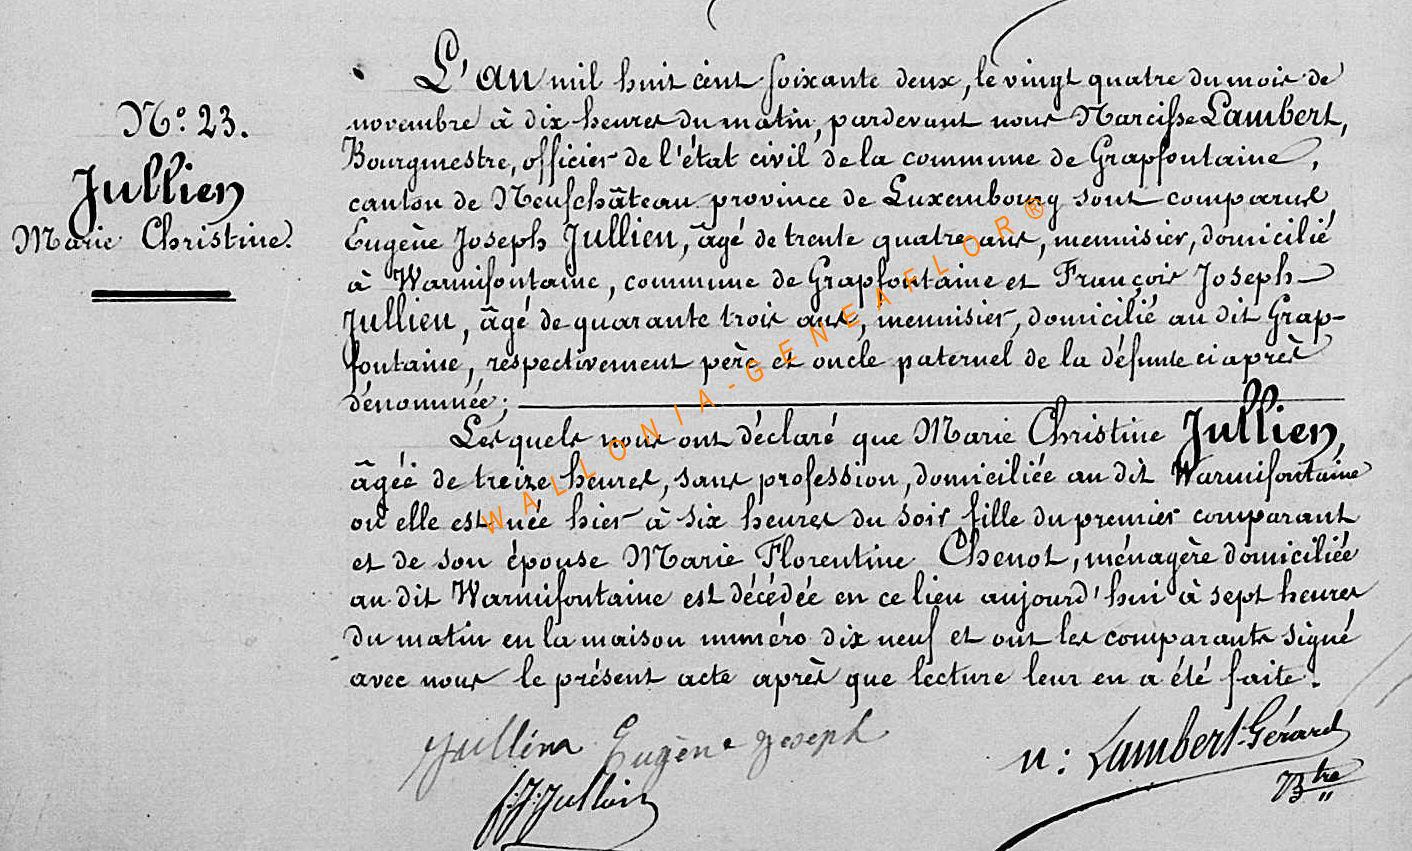 N.º 23.
Jullien
Marie Christine.
L'an mil huit cent soixante deux, le vingt quatre du mois de
novembre à dix heures du matin, pardevant nous Narcisse Lambert,
Bourgmestre, officier de l'état civil de la commune de Grapfontaine,
canton de Neufchâteau province de Luxembourg sont comparus
Eugène Joseph Jullien, âgé de trente quatre ans, menuisier, domicilié
à Warmifontaine, commune de Grapfontaine et François Joseph
Jullien, âgé de quarante trois ans, menuisier, domicilié au dit Grap-
fontaine, respectivement père et oncle paternel de la défunte ci après
dénommée;
Les quels nous ont déclaré que Marie Christine Jullien,
âgée de treize heures, sans profession, domiciliée au dit Warmifontaine
où elle est née hier à six heures du soir fille du premier comparant
et de son épouse Marie Florentine Chenot, ménagère domiciliée
au dit Warmifontaine est décédée en ce lieu aujourd'hui à sept heures
du matin en la maison numéro dix neuf et ont les comparants signé
avec nous le présent acte après que lecture leur en a été faite.
Jullien Eugène Joseph
f. J. Jullien
N: Lambert-Gérard
Btre
WALLONIA-GENEAFLOR®